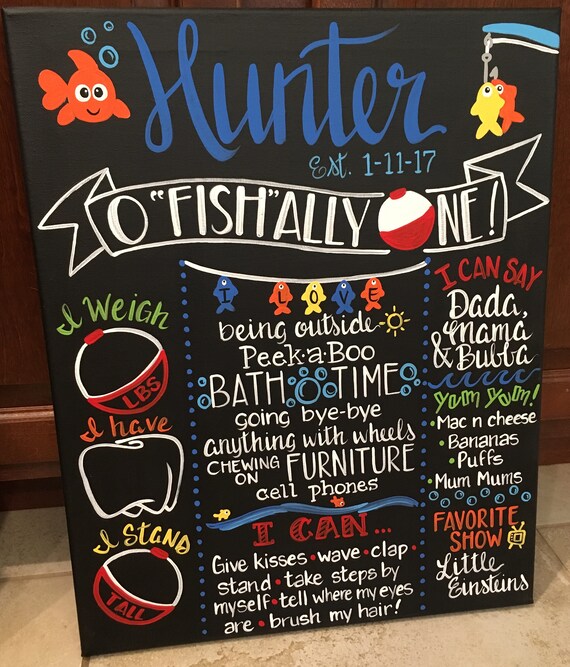 Hunter
Est. 1-11-17
O "FISH"ALLY ONE!
I Weigh
LBS.
I have
I STAND
TALL
I LOVE
being outside
Peek·a·Boo
BATH TIME
going bye-bye
anything with wheels
CHEWING ON FURNITURE
cell phones
I CAN...
Give kisses • wave • clap •
stand • take steps by
myself • tell where my eyes
are • brush my hair!
I CAN SAY
Dada,
Mama
& Bubba
Yum Yum!
• Mac n cheese
• Bananas
• Puffs
• Mum Mums
FAVORITE
SHOW
Little
Einsteins